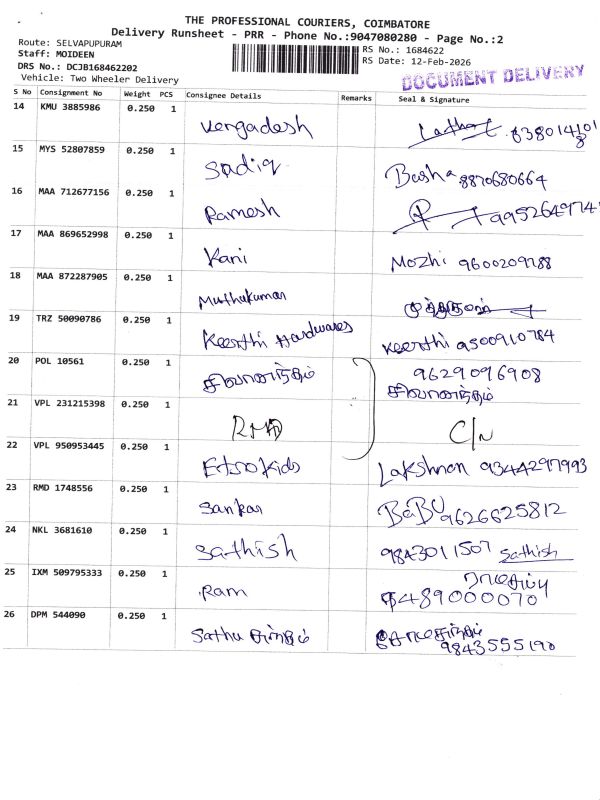 THE PROFESSIONAL COURIERS, COIMBATORE
Delivery Runsheet - PRR - Phone No.:9047080280 - Page No.:2
Route: SELVAPUPURAM
Staff: MOIDEEN
DRS No.: DCJB168462202
Vehicle: Two Wheeler Delivery
RS No.: 1684622
RS Date: 12-Feb-2026
DOCUMENT DELIVERY
S No Consignment No Weight PCS Consignee Details Remarks Seal & Signature
14 KMU 3885986 0.250 1 Vergadesh
15 MYS 52807859 0.250 1 Sadiq Basha 8870680664
16 MAA 712677156 0.250 1 Ramesh
17 MAA 869652998 0.250 1 Kani Mozhi 9600209788
18 MAA 872287905 0.250 1 Muthukumar
19 TRZ 50090786 0.250 1 Keerthi Hardwares Keerthi 9500910784
20 POL 10561 0.250 1 சிவானந்தம் 9629096908
சிவானந்தம்
21 VPL 231215398 0.250 1 RMD C/N
22 VPL 950953445 0.250 1 Lakshman 9344297993
23 RMD 1748556 0.250 1 Sankar BABU 9626625812
24 NKL 3681610 0.250 1 Sathish 9843011507 Sathish
25 IXM 509795333 0.250 1 Ram
26 DPM 544090 0.250 1 Sathu 9843555190